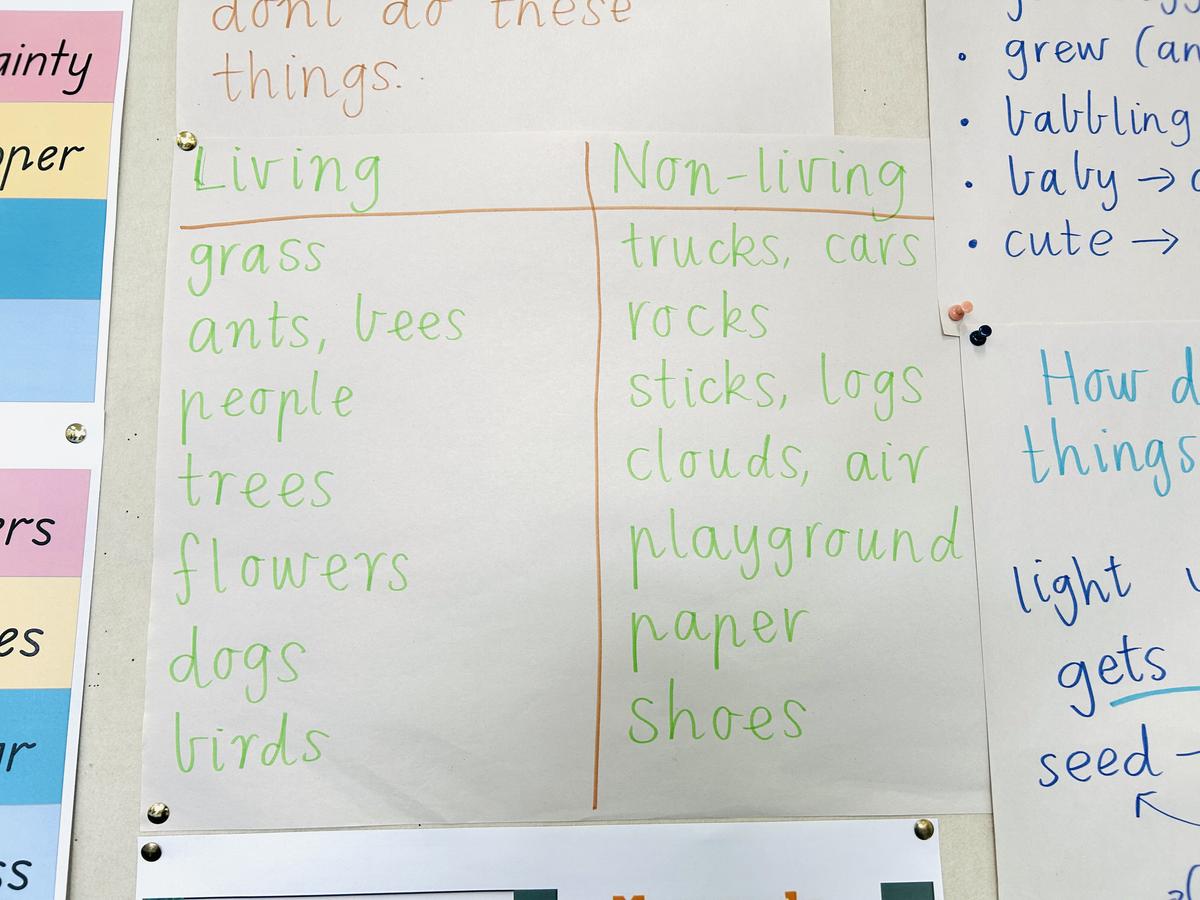 dont do these
things.
Living
Non-living
grass
trucks, cars
ants, bees
rocks
people
sticks, logs
trees
clouds, air
flowers
playground
dogs
paper
birds
shoes
grew (an
babbling
baby →
cute →
How d
things
light
gets
seed
ainty
pper
ers
es
ar
ss